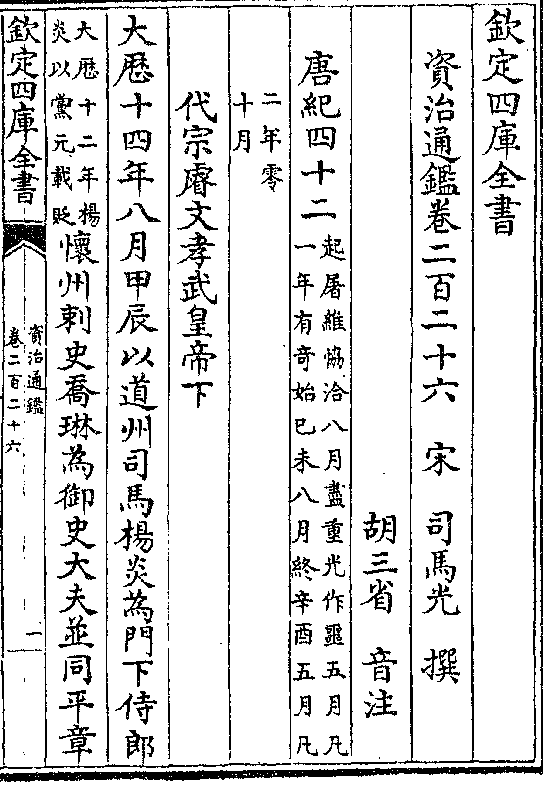 欽定四庫全書
資治通鑑卷二百二十六 宋 司馬光 撰
胡三省 音注
唐紀四十二 起屠維協洽八月盡重光作噩五月凡
一年有奇始己未八月終辛酉五月凡
二年零
十月
代宗睿文孝武皇帝下
大厯十四年八月甲辰以道州司馬楊炎為門下侍郎
大厯十二年楊
炎以黨元載貶 懷州刺史喬琳為御史大夫並同平章
欽定四庫全書
資治通鑑
卷二百二十六
一